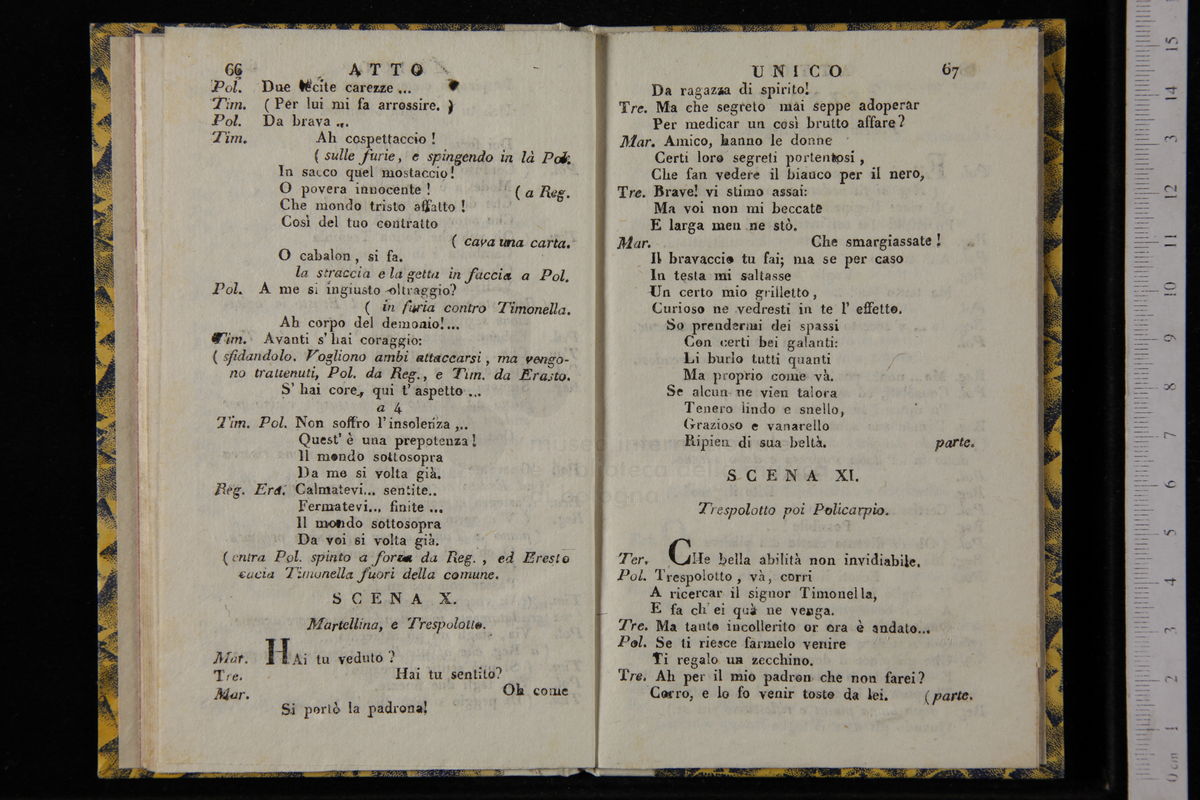 66 ATTO
Pol. Due lecite carezze ...
Tim. ( Per lui mi fa arrossire. )
Pol. Da brava ...
Tim. Ah cospettaccio !
( sulle furie, e spingendo in là Pol.
In sacco quel mostaccio!
O povera innocente ! ( a Reg.
Che mondo tristo affatto !
Così del tuo contratto
( cava una carta.
O cabalon, si fa.
la straccia e la getta in faccia a Pol.
Pol. A me si ingiusto oltraggio?
( in furia contro Timonella.
Ah corpo del demonio!...
Tim. Avanti s' hai coraggio:
( sfidandolo. Vogliono ambi attaccarsi, ma vengo-
no trattenuti, Pol. da Reg., e Tim. da Erasto.
S' hai core, qui t' aspetto ...
a 4
Tim. Pol. Non soffro l' insolenza ,..
Quest' è una prepotenza!
Il mondo sottosopra
Da me si volta già.
Reg. Era. Calmatevi... sentite..
Fermatevi... finite ...
Il mondo sottosopra
Da voi si volta già.
( entra Pol. spinto a forza da Reg. , ed Eresto
cacia Timonella fuori della comune.
SCENA X.
Martellina, e Trespolotto.
Mar. HAi tu veduto ?
Tre. Hai tu sentito?
Mar. Oh come
Si portò la padrona!
UNICO 67
Da ragazza di spirito!
Tre. Ma che segreto mai seppe adoperar
Per medicar un così brutto affare?
Mar. Amico, hanno le donne
Certi loro segreti portentosi ,
Che fan vedere il bianco per il nero,
Tre. Brave! vi stimo assai:
Ma voi non mi beccate
E larga men ne stò.
Mar. Che smargiassate !
Il bravaccio tu fai; ma se per caso
In testa mi saltasse
Un certo mio grilletto ,
Curioso ne vedresti in te l' effetto.
So prendermi dei spassi
Con certi bei galanti:
Li burlo tutti quanti
Ma proprio come và.
Se alcun ne vien talora
Tenero lindo e snello,
Grazioso e vanarello
Ripien di sua beltà. parte.
SCENA XI.
Trespolotto poi Policarpio.
Ter. CHe bella abilità non invidiabile.
Pol. Trespolotto , và, corri
A ricercar il signor Timonella,
E fa ch' ei quà ne venga.
Tre. Ma tanto incollerito or ora è andato...
Pol. Se ti riesce farmelo venire
Ti regalo un zecchino.
Tre. Ah per il mio padron che non farei?
Corro, e lo fo venir tosto da lei. (parte.